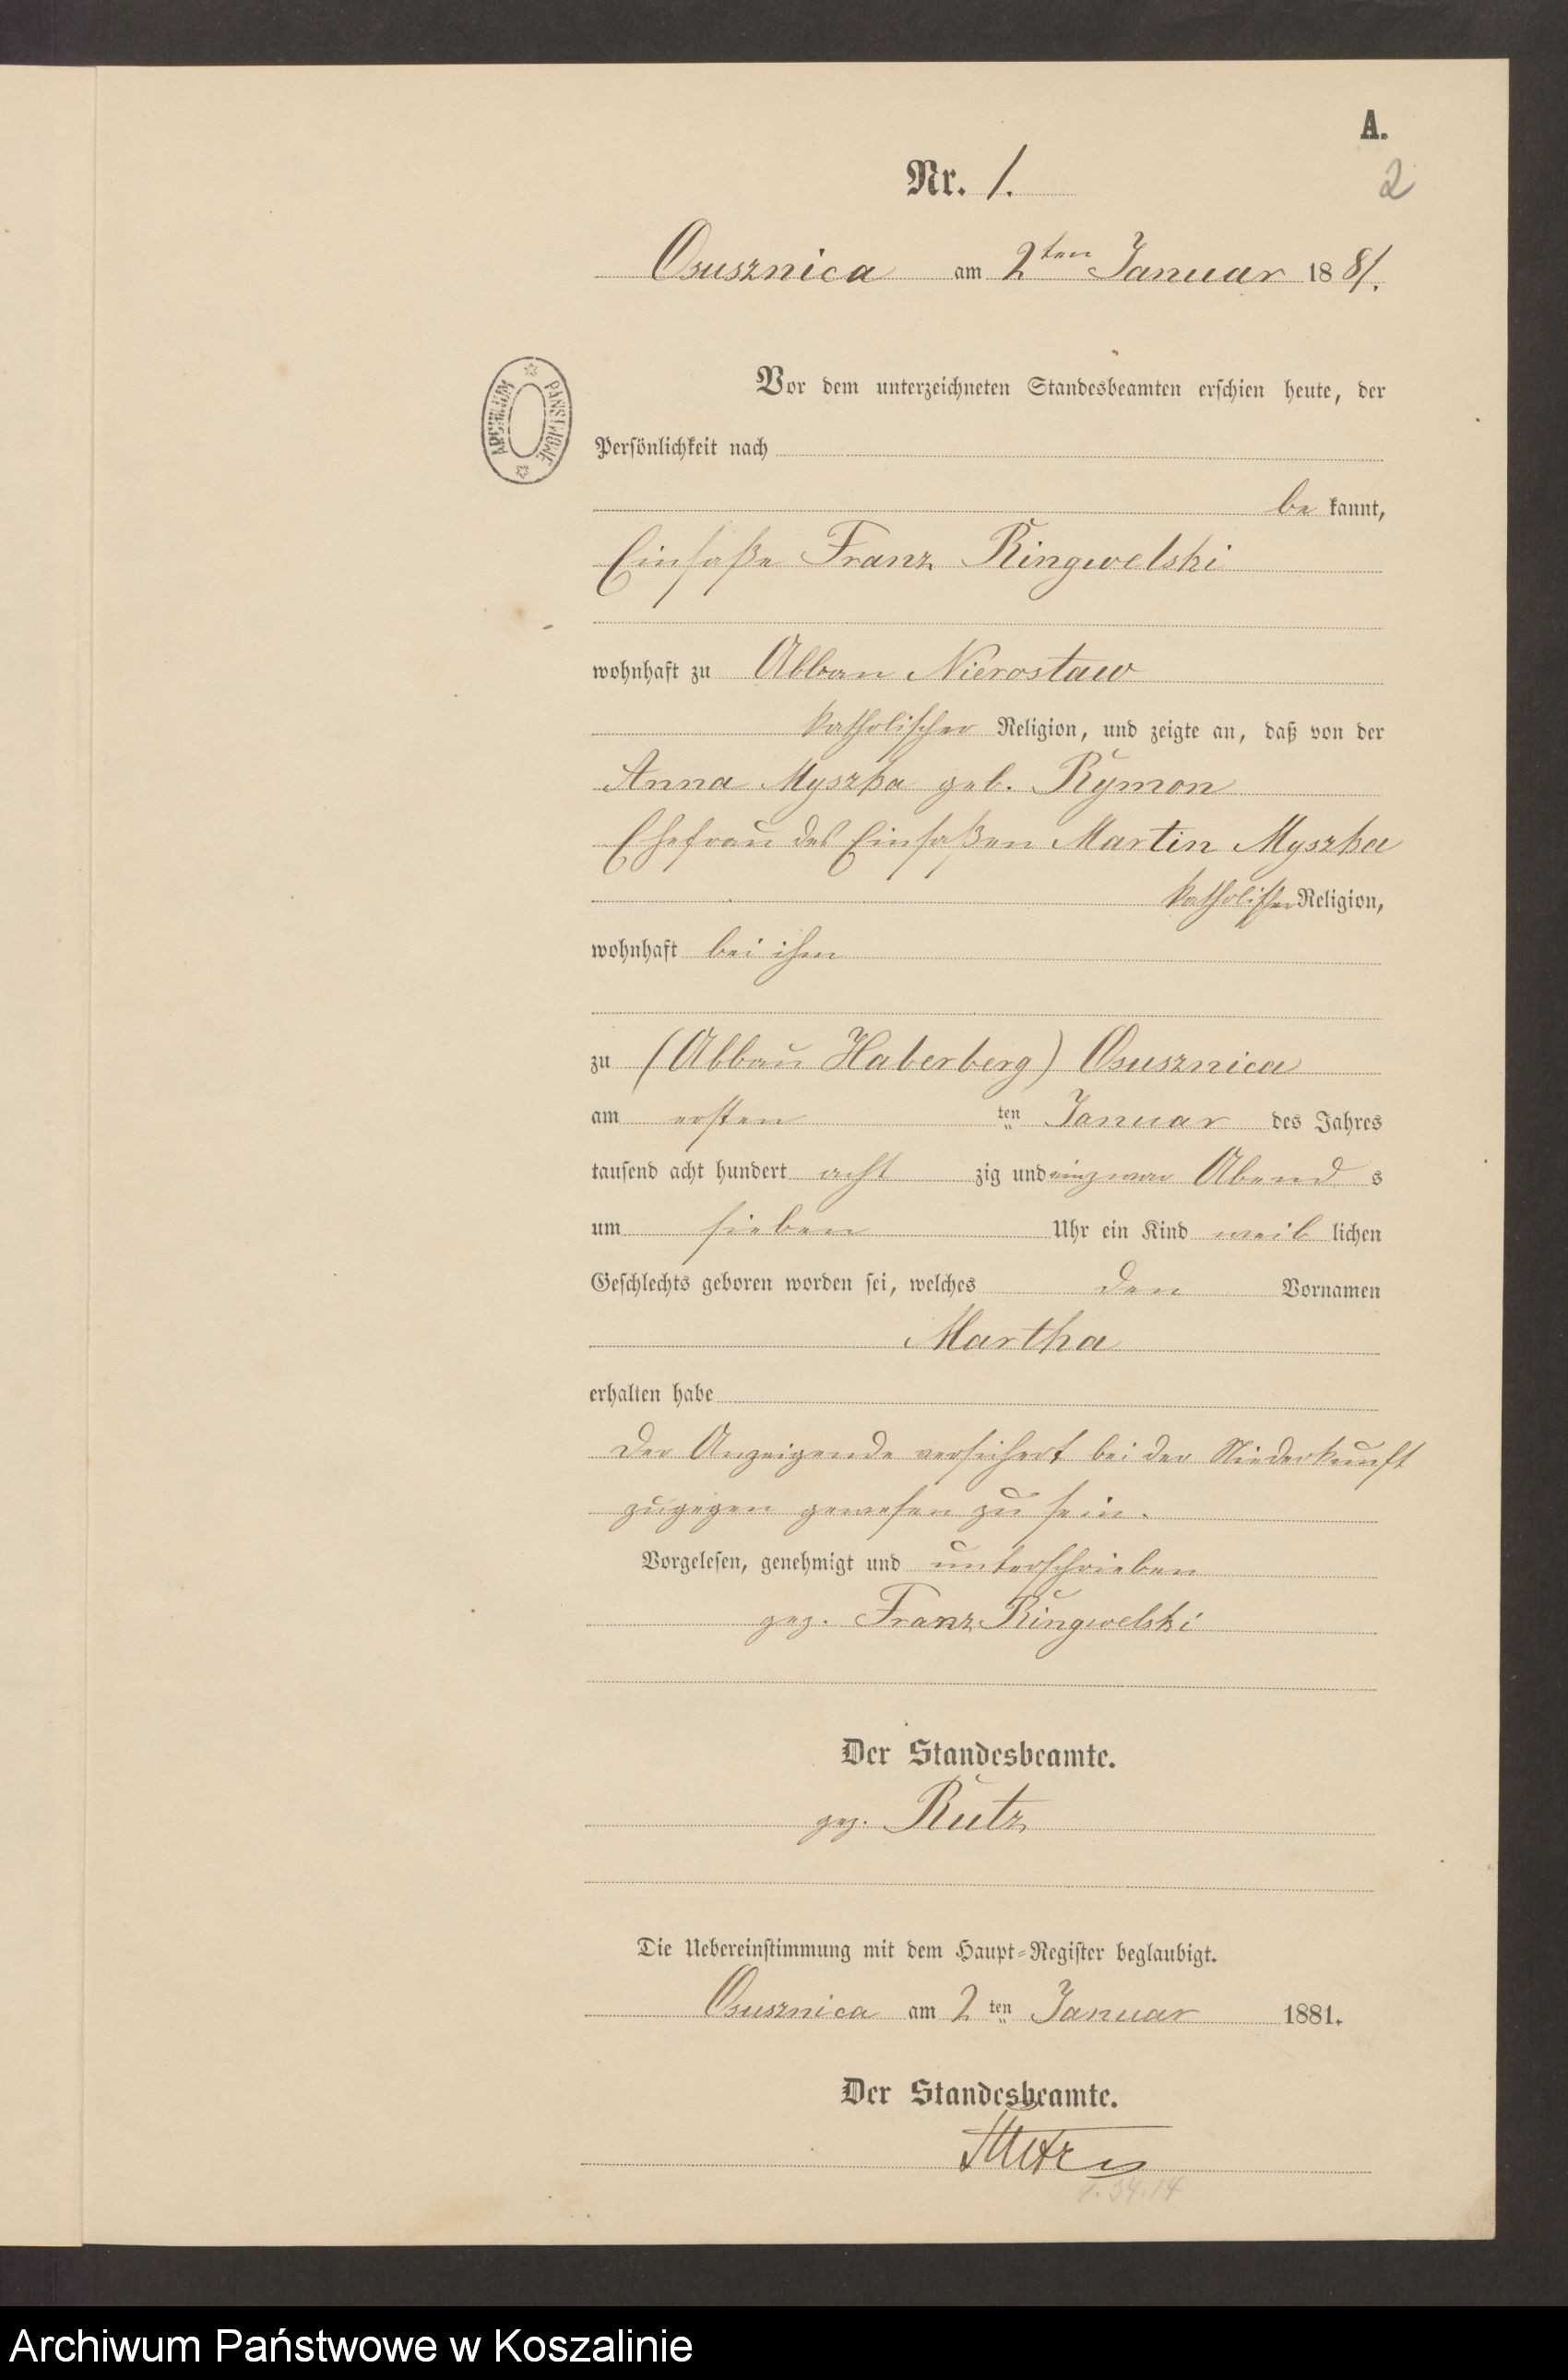 A.
2
Nr. 1.
Osusznica am 2ten Januar 1881.
Vor dem unterzeichneten Standesbeamten erschien heute, der
Persönlichkeit nach
be kannt,
Einsaße Franz Ringwelski
wohnhaft zu Abbau Nierostaw
katholischer Religion, und zeigte an, daß von der
Anna Myszka geb. Rymon
Ehefrau des Einsaßen Martin Myszka
katholischer Religion,
wohnhaft bei ihm
zu (Abbau Haberberg) Osusznica
am ersten ten Januar des Jahres
tausend acht hundert acht zig und ein zwar Abend s
um sieben Uhr ein Kind weib lichen
Geschlechts geboren worden sei, welches den Vornamen
Martha
erhalten habe
Der Anzeigende versichert bei der Niederkunft
zugegen gewesen zu sein.
Vorgelesen, genehmigt und unterschrieben
gez. Franz Ringwelski
Der Standesbeamte.
gez. Rutz
Die Uebereinstimmung mit dem Haupt-Register beglaubigt.
Osusznica am 2 ten Januar 1881.
Der Standesbeamte.
Rutz
34.14
ARCHIWUM PAŃSTWOWE
Archiwum Państwowe w Koszalinie